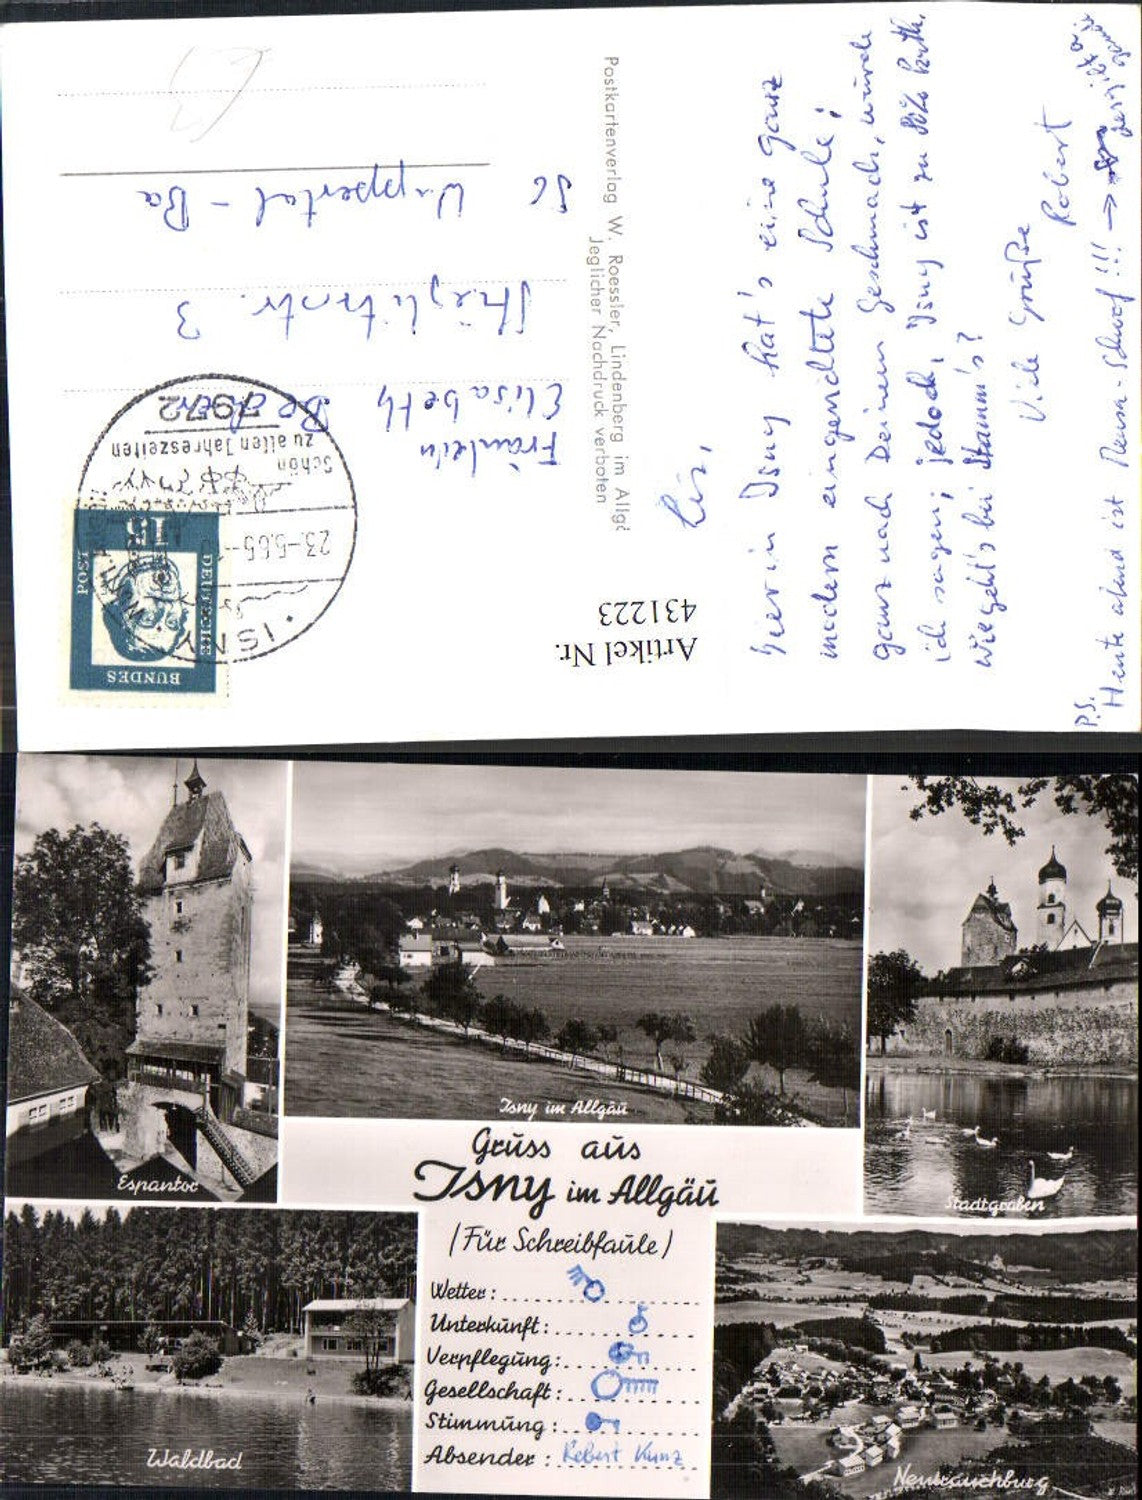 Lis,
Hier in Isny hat's eine ganz
modern eingerichtete Schule;
ganz nach Deinem Geschmach, würde
ich sagen; jedoch, Isny ist zu kath.
Wie geht's bei Stamm's?
Viele Grüße
Robert
P.S.
Heute abend ist Mensa-Schwof!!! →
Postkartenverlag W. Roessler, Lindenberg im Allgä
Jeglicher Nachdruck verboten
Artikel Nr.
431223
BUNDES
DEUTSCHE
POST
15
ISNY
23.-5.65-
Schön
zu allen Jahreszeiten
7972
Fräulein
Elisabeth
Stieglitzstr. 3
56 Wuppertal - Ba
Espantor
Isny im Allgäu
Stadtgraben
Gruss aus
Isny im Allgäu
(Für Schreibfaule)
Wetter:
Unterkunft:
Verpflegung:
Gesellschaft:
Stimmung:
Absender: Robert Kunz
Waldbad
Neutrauchburg